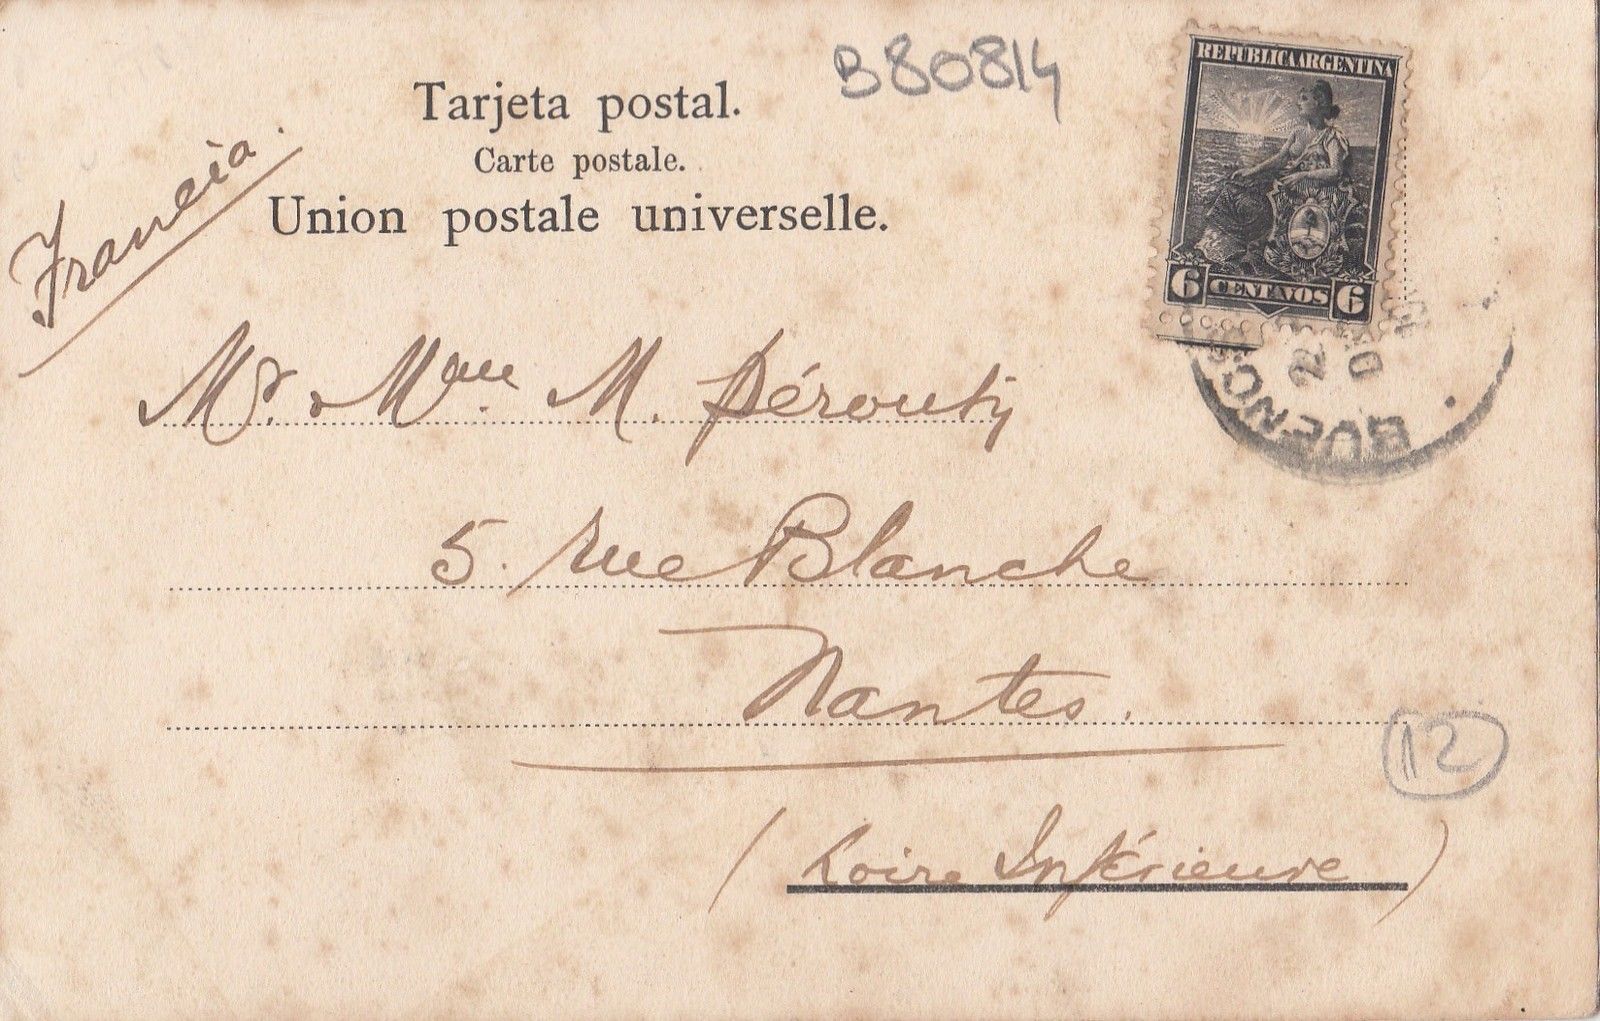 B80814
REPUBLICA ARGENTINA
6 CENTAVOS 6
Tarjeta postal.
Carte postale.
Union postale universelle.
Francia.
BUENOS
22
Mr. & Mme. M. Pérouty
5. rue Blanche
Nantes.
12
(Loire Inférieure)